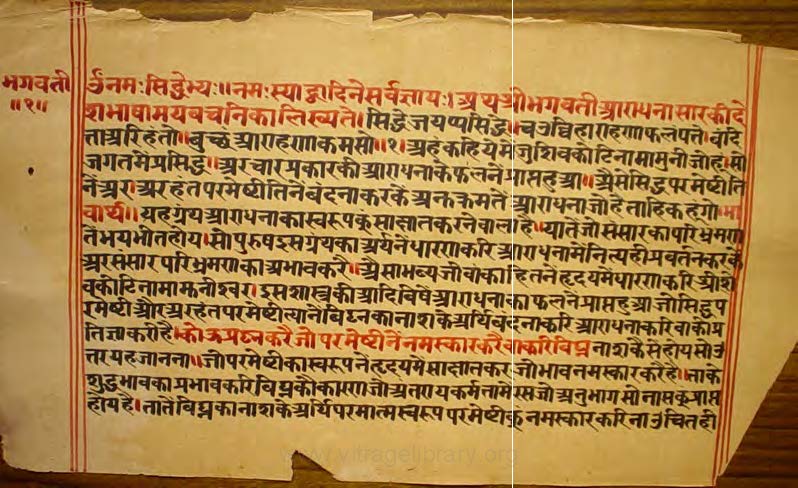 भगवती
॥१॥
ॐ नमः सिद्धेभ्यः ॥ नमः स्याद्वादिने सर्वज्ञाय । अथ श्री भगवती आराधनासार की दे
शभाषामय वचनिका लिख्यते । सिद्धे जयप्पसिद्धे । चउव्विहाराहणाफलं पत्ते । वंदि
त्ता अरिहंतो । बुच्छं आराहणा कमसो ॥१॥ अहं कहिये मैं जु शिवकोटिनामा मुनी जो हूं । सो
जगतमैं प्रसिद्ध ॥ अर चार प्रकार की आराधना के फलनैं प्राप्त हुआ ॥ असे सिद्ध परमेष्टी ति
नैं अर । अरहंत परमेष्टी तिनै बंदना करकैं अनुक्रमतैं आराधना जो है ताहि कहूंगो । भा
वार्थ ॥ यह ग्रंथ आराधना का स्वरूपकू साक्षात करने वाला है ॥ यातै जो संसार का परिभ्रमण
तै भयभीत होय । सो पुरुष इस ग्रंथ का अर्थनै धारण करि आराधनामै नित्य ही प्रवर्तन करकै
अर संसार परिभ्रमण का अभाव करै ॥ असा भव्यजीवो का हित नै हृदयमै धारण करि श्री शि
वकोटिनामा मुनीश्वर । इस शास्त्र की आदिविषै आराधना का फलनै प्राप्त हुआ जो सिद्ध प
रमेष्टी और अरहंत परमेष्टी त्यानै विघ्न का नाश के अर्थि बंदना करि आराधना करिवा की प्र
तिज्ञा करी है । कोऊ प्रश्न करै जो परमेष्टीनैं नमस्कार करैवा करि विघ्न नाश कैसे होय सो उ
त्तर यह जानना ॥ जो परमेष्टी का स्वरूपनै हृदयमै साक्षात कर जो भाव नमस्कार करे हे ॥ ताके
शुद्ध भाव का प्रभाव करि विघ्न कौ कारण जो अंतराय कर्म तामे रस जो अनुभाग सो नाशकू प्राप्त
होय है । तातै विघ्न का नाश के अर्थि परमात्मस्वरूप परमेष्टीकू नमस्कार करिना उचित ही
www.vitragelibrary.org